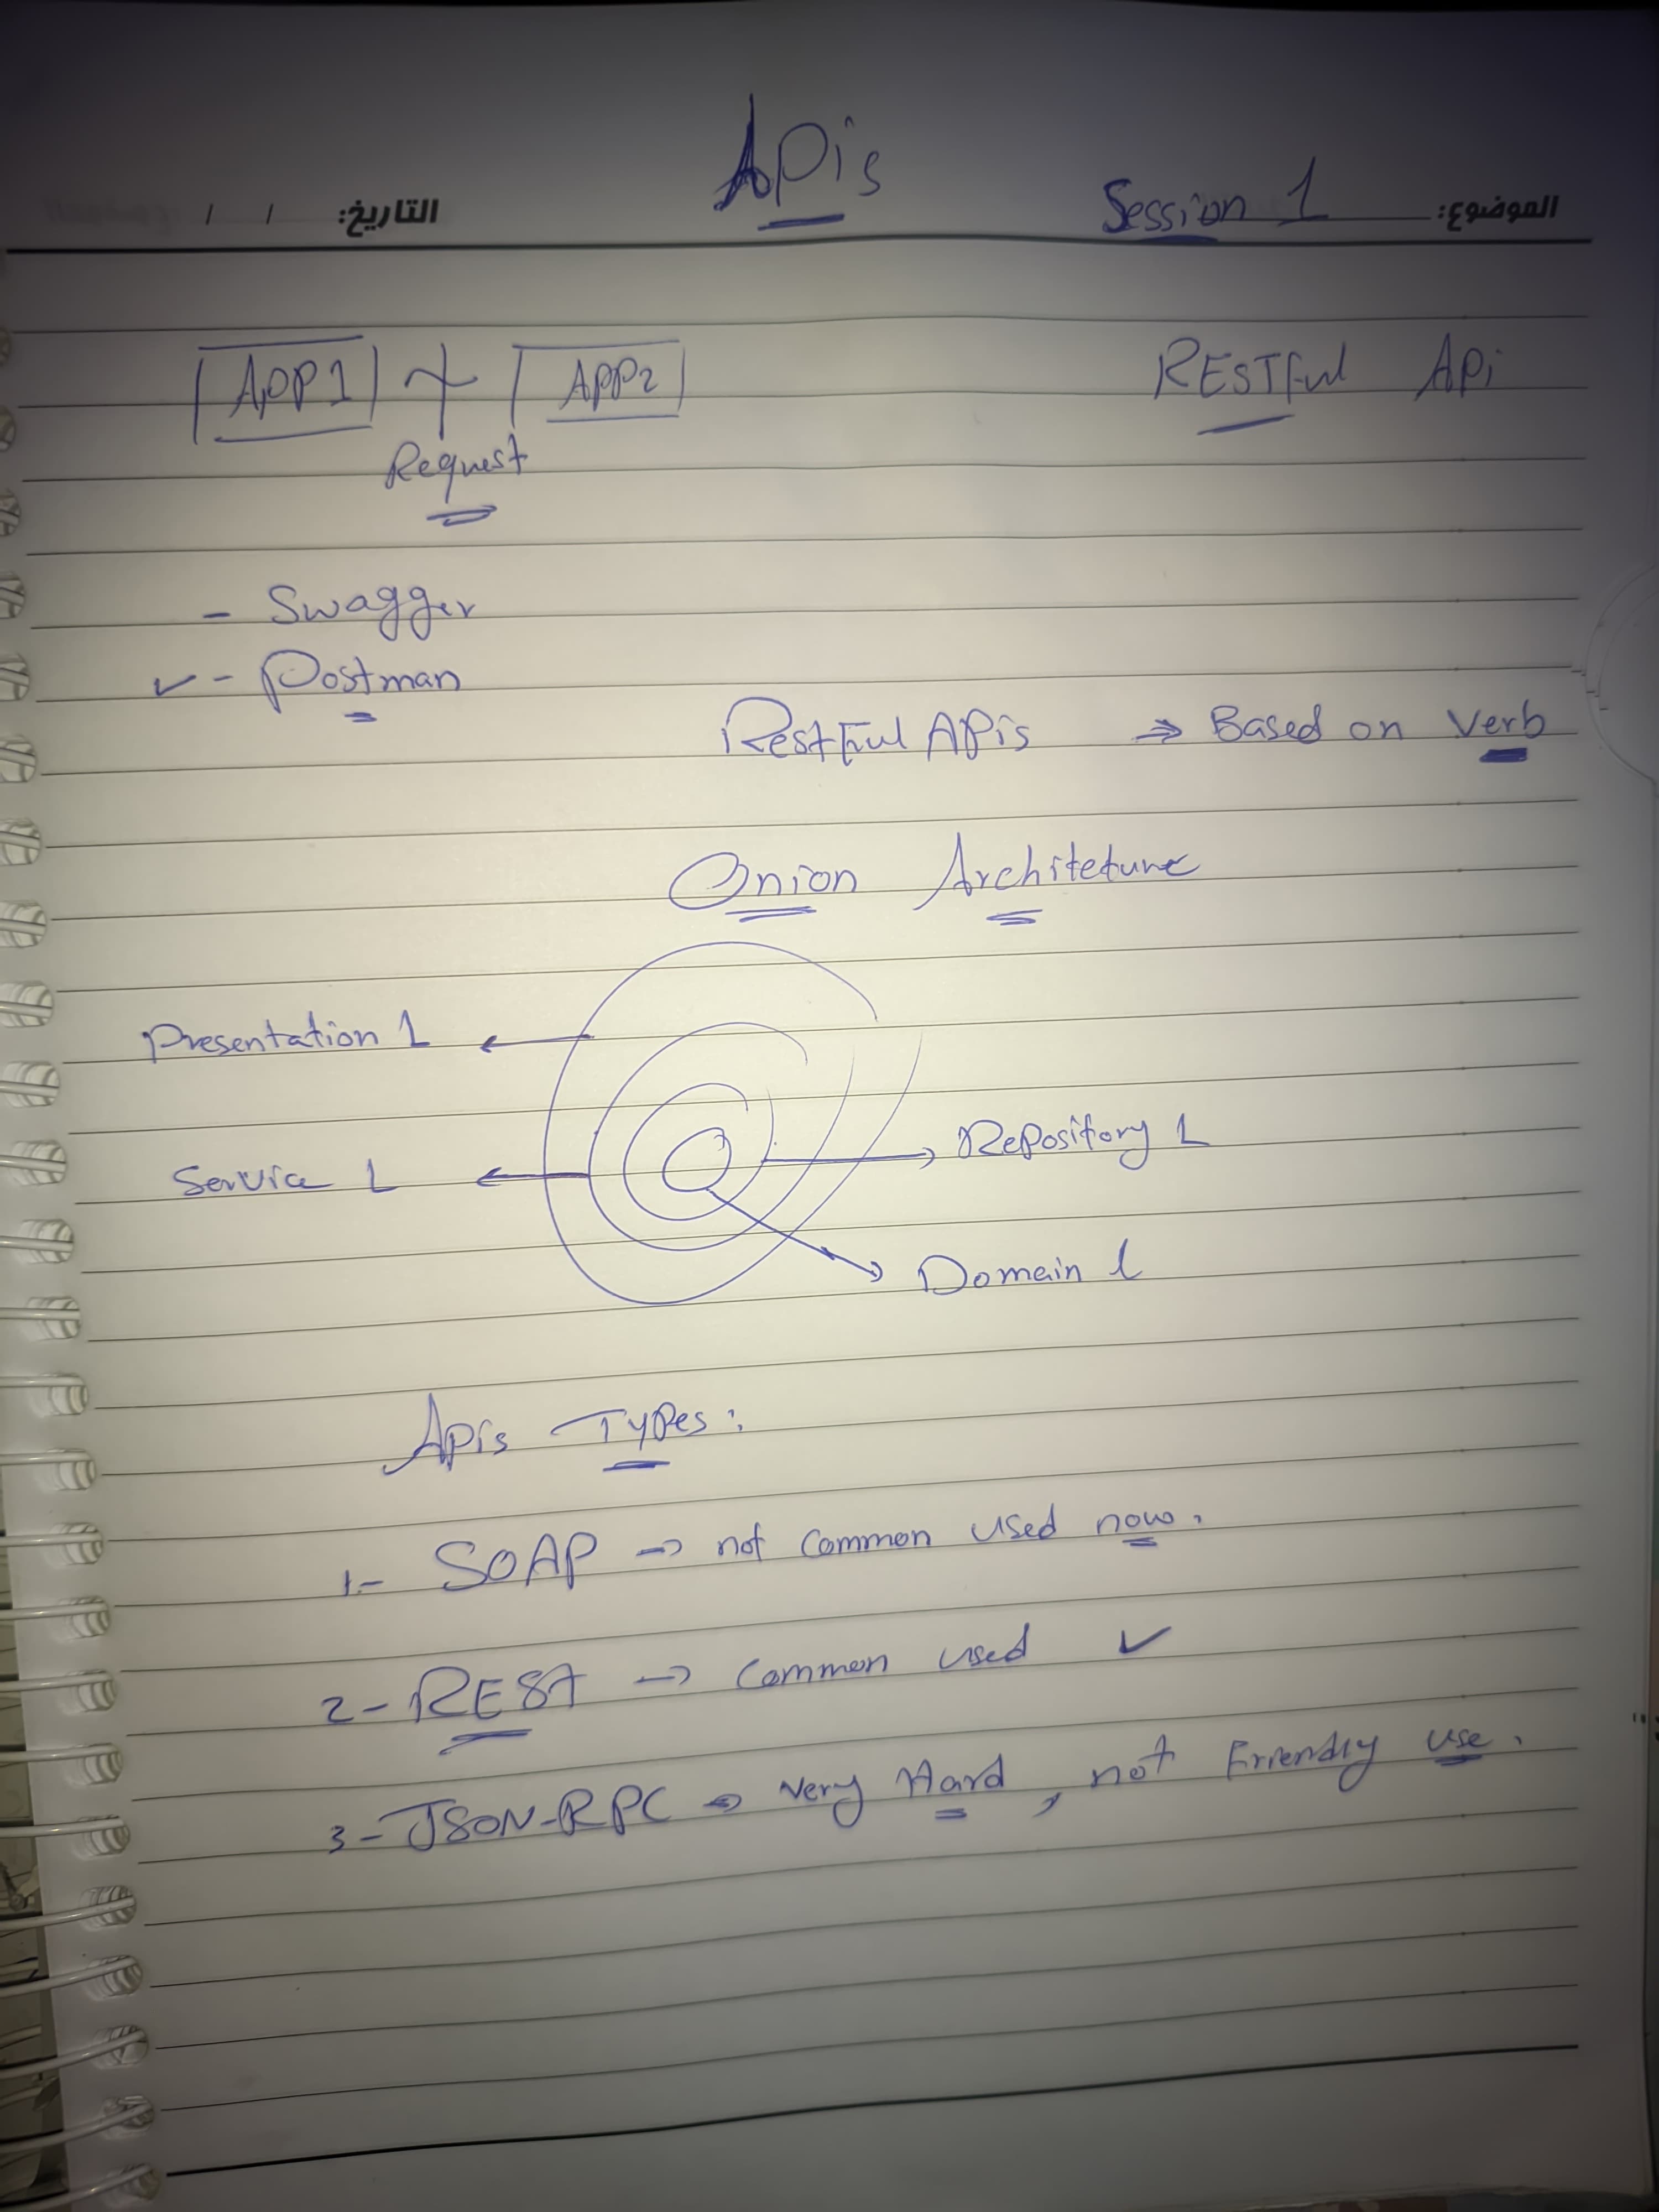 APis
الموضوع: Session 1
التاريخ: / /
APP1 + APP2
Request
RESTful Api
- Swagger
✓ - Postman
RestFul APis ⇒ Based on Verb
Onion Architeture
Presentation L
Service L
Repository L
Domain l
Apis Types:
1- SOAP → not Common used now.
2- REST → Common used ✓
3- JSON-RPC → very Hard, not Friendly use.